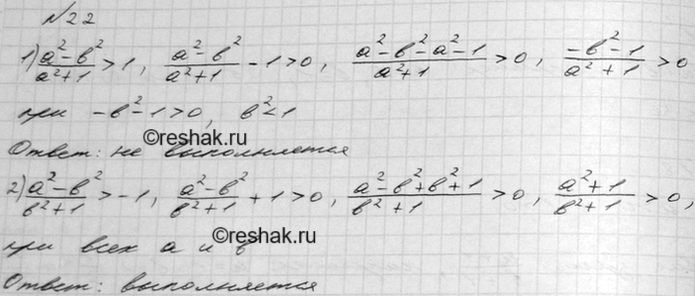 №22
1) (a²-b²)/(a²+1) > 1, (a²-b²)/(a²+1) - 1 > 0, (a²-b²-a²-1)/(a²+1) > 0, (-b²-1)/(a²+1) > 0
при -b²-1>0, b²<1
©reshak.ru
Ответ: не выполняется
2) (a²-b²)/(b²+1) > -1, (a²-b²)/(b²+1) + 1 > 0, (a²-b²+b²+1)/(b²+1) > 0, (a²+1)/(b²+1) > 0,
при всех a и b
©reshak.ru
Ответ: выполняется